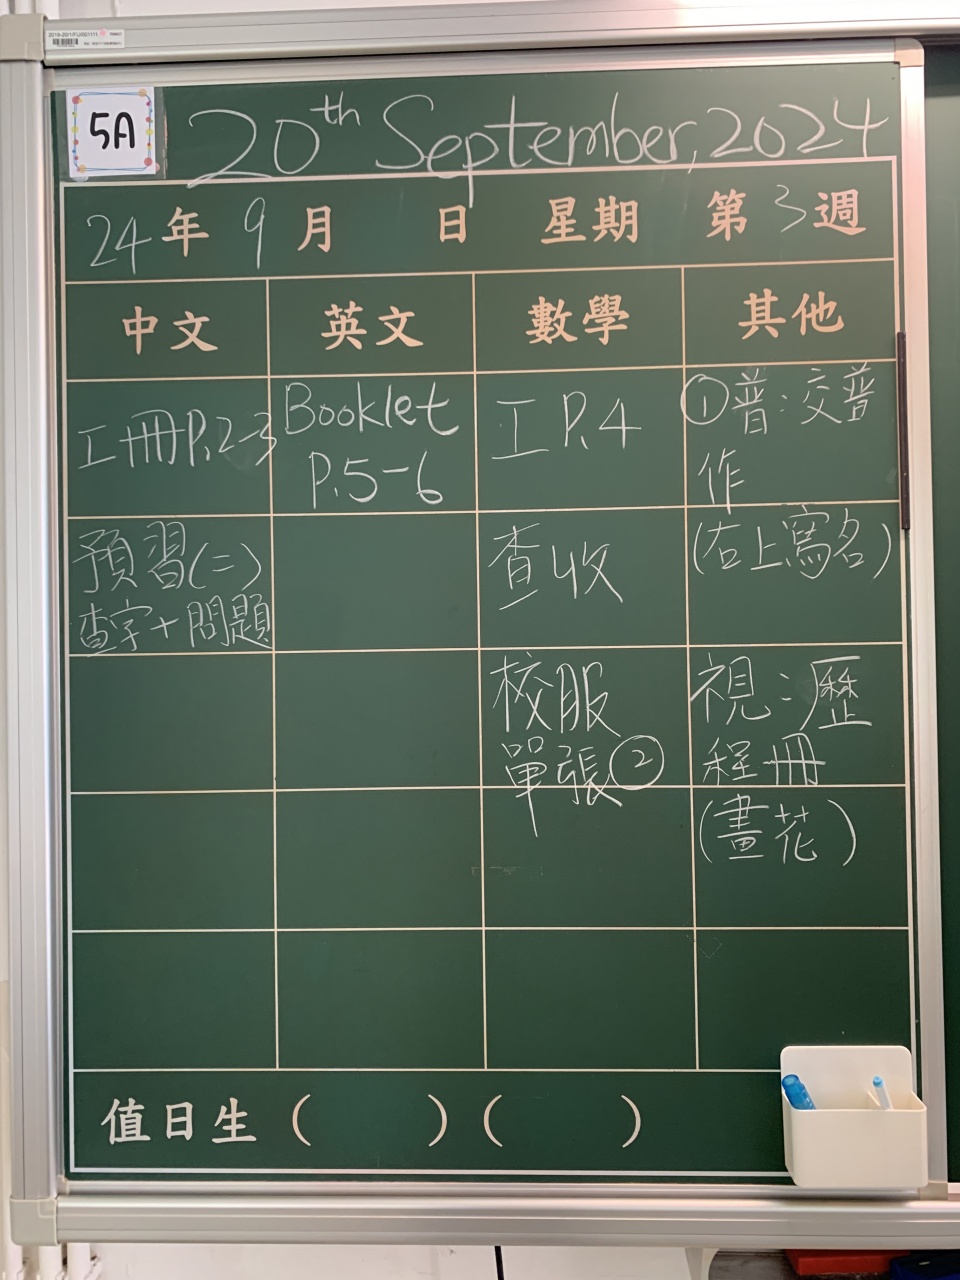 2019-20/1/FU/001111
5A
20th September, 2024
24年 9月 日 星期 第3週
中文 英文 數學 其他
工冊P.2-3
Booklet
P.5-6
工 P.4
①普:交普
作
預習(二)
查字+問題
查收
(右上寫名)
校服
單張②
視:歷
程冊
(畫花)
值日生( )( )